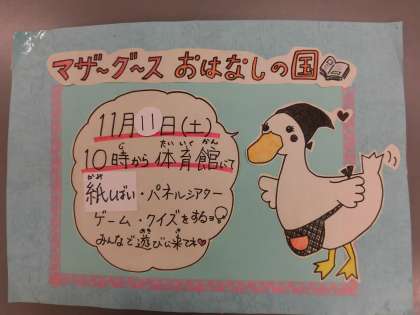 マザ〜グ〜ス おはなしの国
11月11日(土)
10時から体育館にて
紙しばい・パネルシアター
ゲーム・クイズをするヨ
みんなで遊びに来てネ